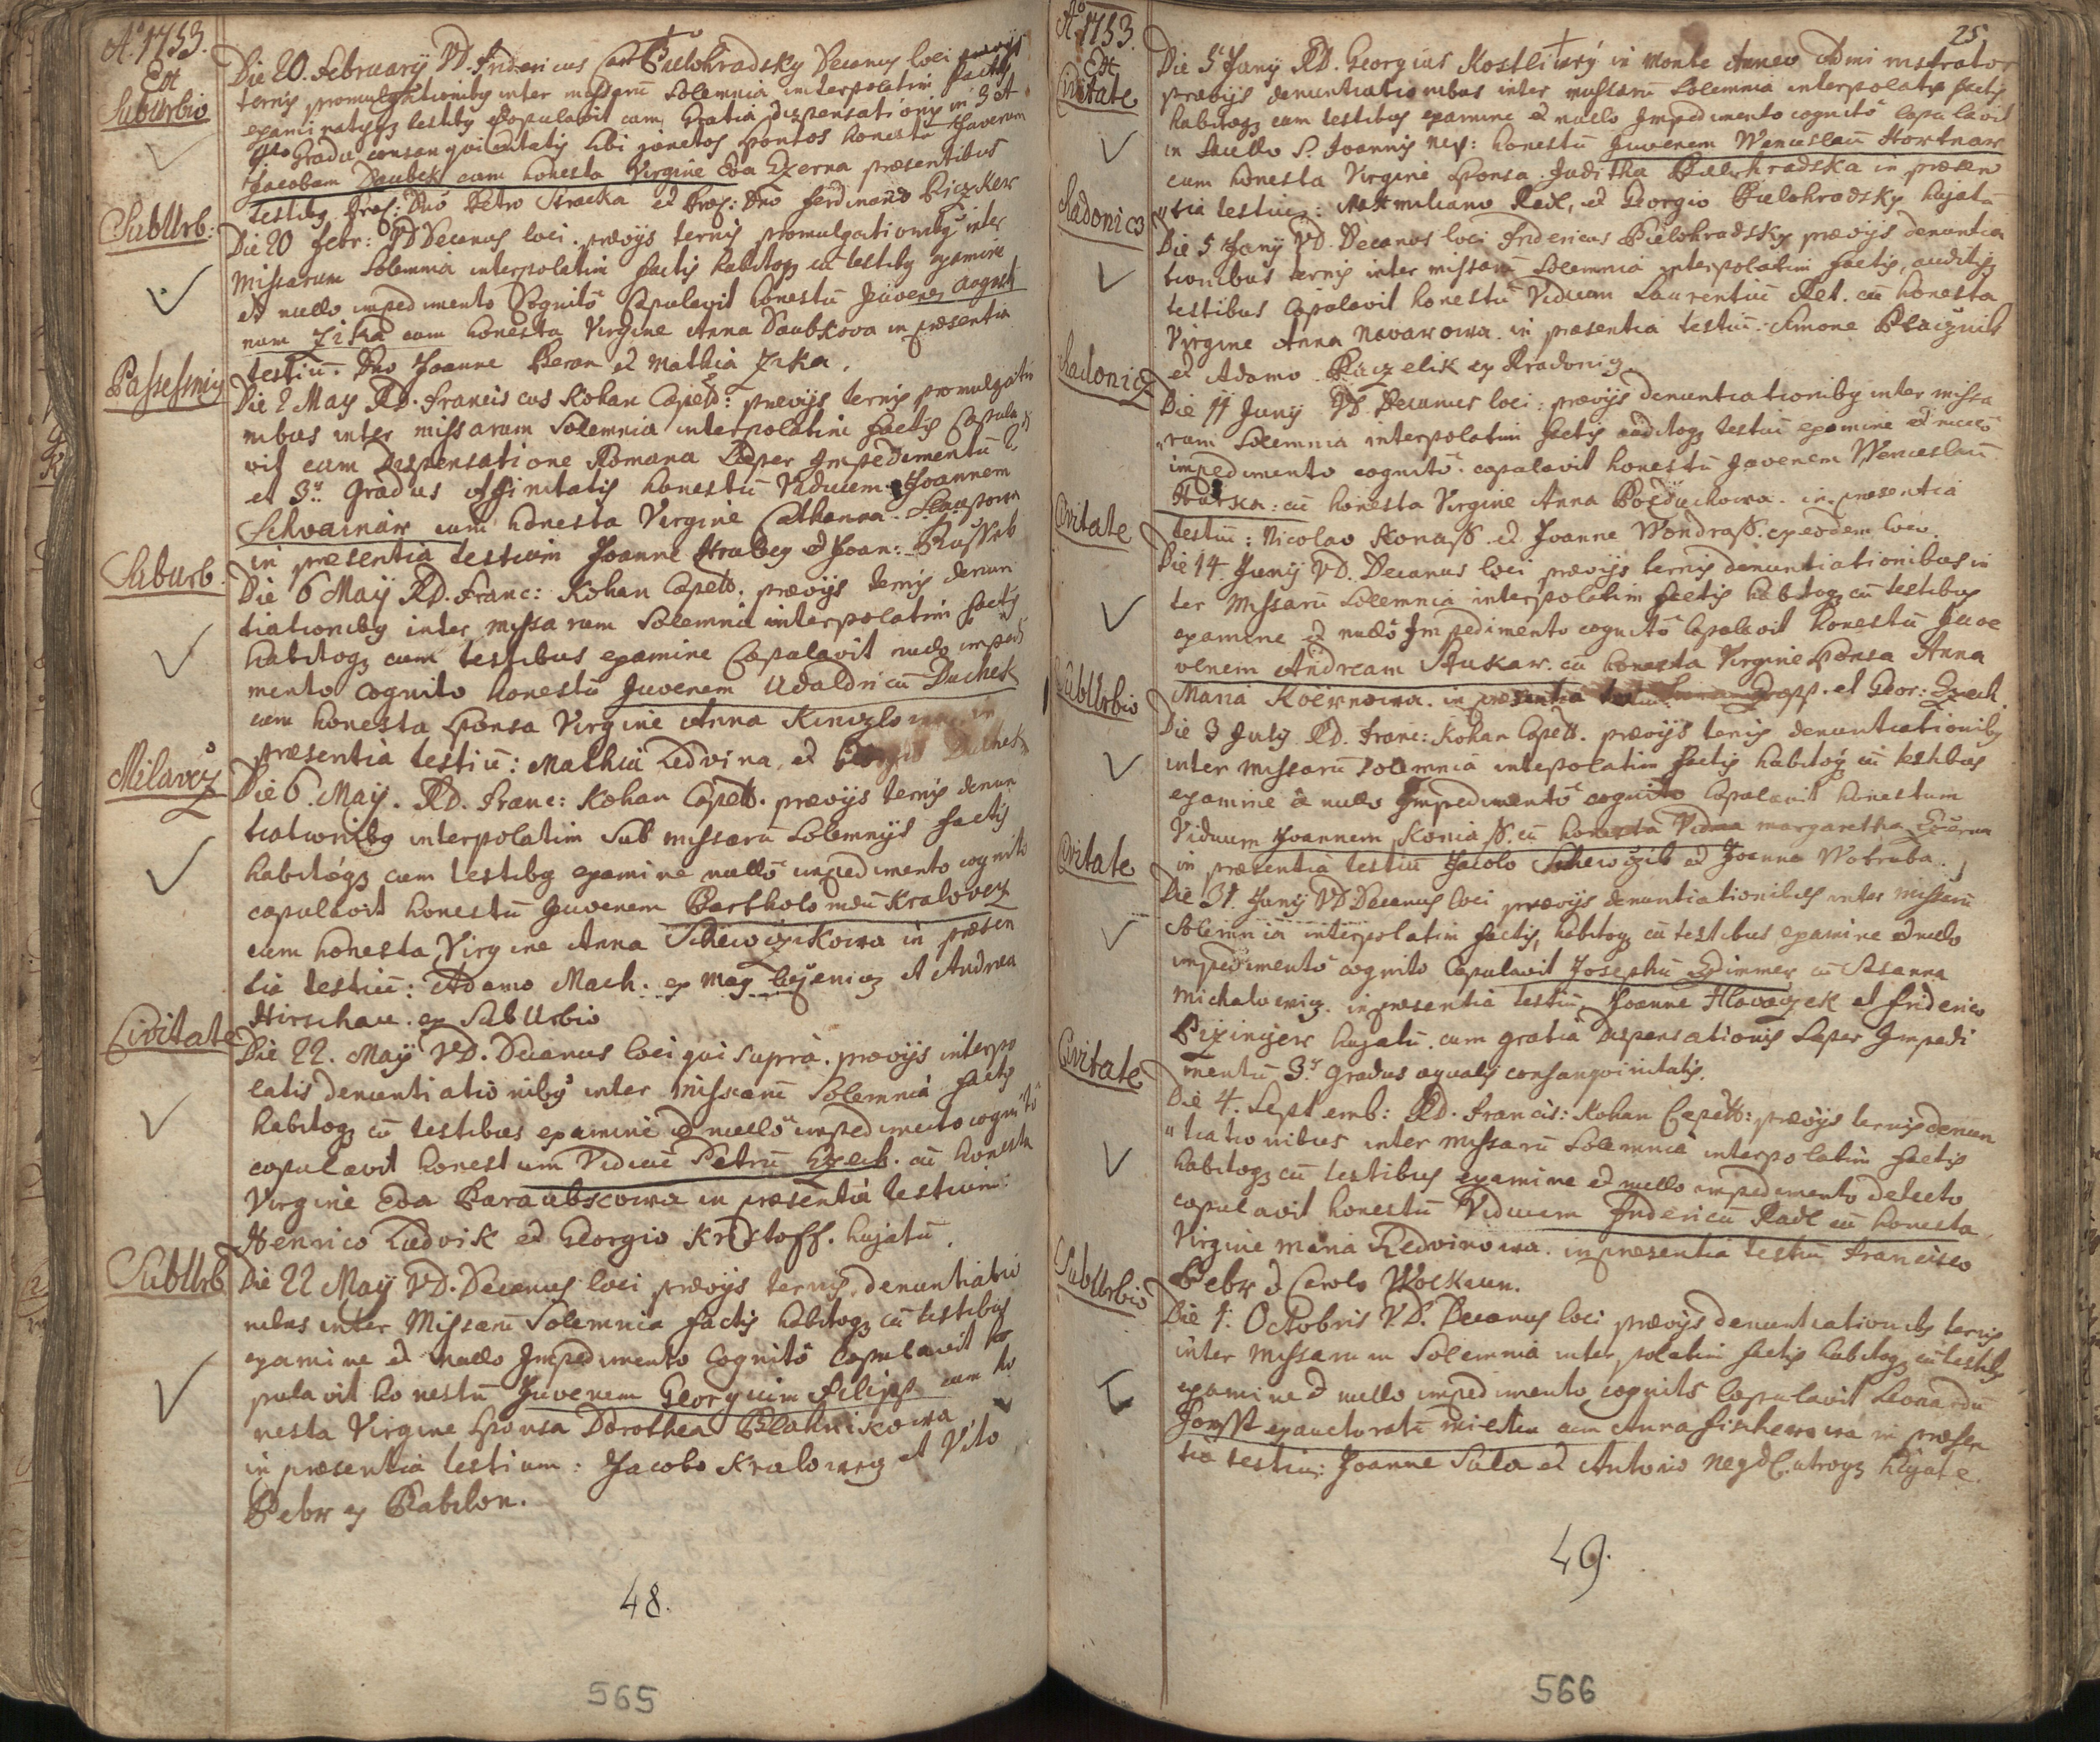 Aõ 1753.
Ext
Suburbio
Die 20. February VD. Fridericus Carl Bielohradsky Decanus loci prævijs
ternis promulgationibg inter missarũ Solemnia interpolatim factis
examinatisqz testibg copulavit cum Gratia dispensationis in 3 et
4to Gradu consanguinitatis sibi junctos Sponsos honestũ Juvenem
Jacobum Daubek cum honesta Virgine Eva Czerna præsentibus
testibg. Præs: Dno Petro Straka et Præs: Dno Ferdinando Biczker
SubUrb:
Die 20 Febr: VD Decanus loci. prævijs ternis promulgationibg inter
Missarum Solemnia interpolatim factis habitoqz cũ testibg examine
et nullo impedimento Cognitô Copulavit honestũ Juvenem Augusti
num Zika cum honesta Virgine Anna Daubkova in præsentia
testiũ. Dno Joanne Beran et Mathia Zika.
Passesniz
Die 2 May RD. Franciscus Kohan Capells: prævijs ternis promulgatio
nibus inter missarum Solemnia interpolatim factis Copula
vit cum Dispensatione Romana Super Impedimentũ 2.
et 3ij Gradus affinitatis honestũ Viduum Joannem
Schwainar cum honesta Virgine Catharina
in præsentia testium Joanne Hrubey et Joan:
Suburb.
Die 6 May RD. Franc: Kohan Capells. prævijs ternis denun
tiationibg inter missarum Solemnia interpolatim factis
habitoqz cum testibus examine Copulavit nullo impedi
mento cognito honestũ Juvenem Udaldricũ Duchek
cum honesta Sponsa Virgine Anna in
præsentia testiũ: Mathia Ledvina, et Georgio Duchek
Milavcz
Die 6. May. RD. Franc: Kohan Capells. prævijs ternis denun
tiationibg interpolatim Sub missarũ Solemnijs factis
habitoqz cum testibg examine nullô impedimento cognito
copulavit honestũ Juvenem Bartholomæũ Kralovez
cum honesta Virgine Anna Schewczikowa in præsen
tia testiũ: Adamo Mach. ex et Andrea
Hirschau. ex SubUrbio
Civitate
Die 22. May VD. Decanus loci qui supra. prævijs interpo
latis denuntiationibg inter Missarũ Solemnia factis
habitoqz cũ testibus examine et nullô impedimento cognitô
copulavit honestum Viduũ Petrũ Czech. cũ honesta
Virgine Eva in præsentia testium:
Henrico Ludvik et Georgio Kristoff. hujatũ.
SubUrb
Die 22 May VD. Decanus loci prævijs ternis denuntiatio
nibus inter Missarũ Solemnia factis habitoqz cũ testibus
examine et nullo Impedimento Cognitô Copulavit ho
pulavit honestũ Juvenem Georgium Filips cum ho
nesta Virgine Sponsa Dorothea Blahnikowa
in præsentia testium: Jacobo Kralowez et Vito
Bebr ex Babilon.
48.
565
Aõ 1753.
25.
Ext
Civitate
Die 5 Junij RD. Georgius Kostliwý in Monte Annæo Administrator
prævijs denuntiationibus inter missarũ Solemnia interpolatis factis
habitoqz cum testibus examine et nullo Impedimento cognitô copulavit
in Sacello S. Joannis Nep: honestũ Juvenem Wenceslaũ Hortnar
cum honesta Virgine Sponsa Juditha Bielohradska in præsen
tia testiũ: Maximiliano Radl, et Georgio Bielohradsky hujatũ
Radonicz
Die 5 Junij VD. Decanus loci Fridericus Bielohradsky prævijs denuntia
tionibus ternis inter missarũ Solemnia interpolatim factis, auditisqz
testibus Copulavit honestũ Viduum Laurentiũ Rel. cũ honesta
Virgine Anna Navarowa. in præsentia testiũ: Simone
et Adamo ex Radonicz
Radonicz
Die 11 Junij VD. Decanus loci: prævijs denuntiationibg inter missa
rum Solemnia interpolatim factis auditoqz testiũ examine et nullo
impedimento cognitô. copulavit honestũ Juvenem Wenceslaũ
cũ honesta Virgine Anna in præsentia
testiũ: Nicolao Konass. et Joanne Wondrass. ex eodem loco.
Civitate
Die 14. Junij VD. Decanus loci prævijs ternis denuntiationibus in
ter Missarũ Solemnia interpolatim factis habitoqz cũ testibus
examine et nullô Impedimento cognitô Copulavit honestũ Juve
venem Andream Stukar. cũ honesta Virgine Sponsa Anna
Maria in præsentia et Geor: Czech.
SubUrbio
Die 3 July RD. Franc: Kohan Capells. prævijs ternis denuntiationibg
inter missarũ Solemnia intepolatim factis habitoqz cũ testibus
examine et nullo Impedimentô cognito Copulavit honestum
Viduum Joannem Koniass. cũ honesta Vidua Margaretha
in præsentia testiũ Jacobo Schewczik et Joanne Wotruba.
Civitate
Die 31. Junij VD Decanus loci prævijs denuntiationibus inter missarũ
Solemnia interpolatim factis, habitoqz cũ testibus examine et nullo
impedimentô cognito Copulavit Josephũ Zimmer cũ Susanna
Michalowicz. in præsentia testiũ Joanne Hlavaczek et Friderico
hujatũ. cum gratia dispensationis Super Impedi
mentũ 3ij gradus æqualis consanguinitatis.
Civitate
Die 4. Septemb: RD. Francis: Kohan Capells: prævijs ternis denun
tiationibus inter missarũ Solemnia interpolatim factis
habitoqz cũ testibus examine et nullo impedimento detecto
copulavit honestũ Viduum Fridericũ Radl cũ honesta
Virgine Maria Ledvinowa. in præsentia testiũ Francisco
Bebr et Carolo Wolkaun.
SubUrbio
Die 1. Octobris V.D. Decanus loci prævijs denuntiationibg ternis
inter Missarum Solemnia interpolatim factis habitoqz cũ testibg
examine et nullo impedimento cognitô Copulavit Leonardũ
Forst exauctoratũ militem cum Anna Fischerowa in præsen
tia testiũ: Joanne Sula et Antonio utroqz hujate.
49.
566